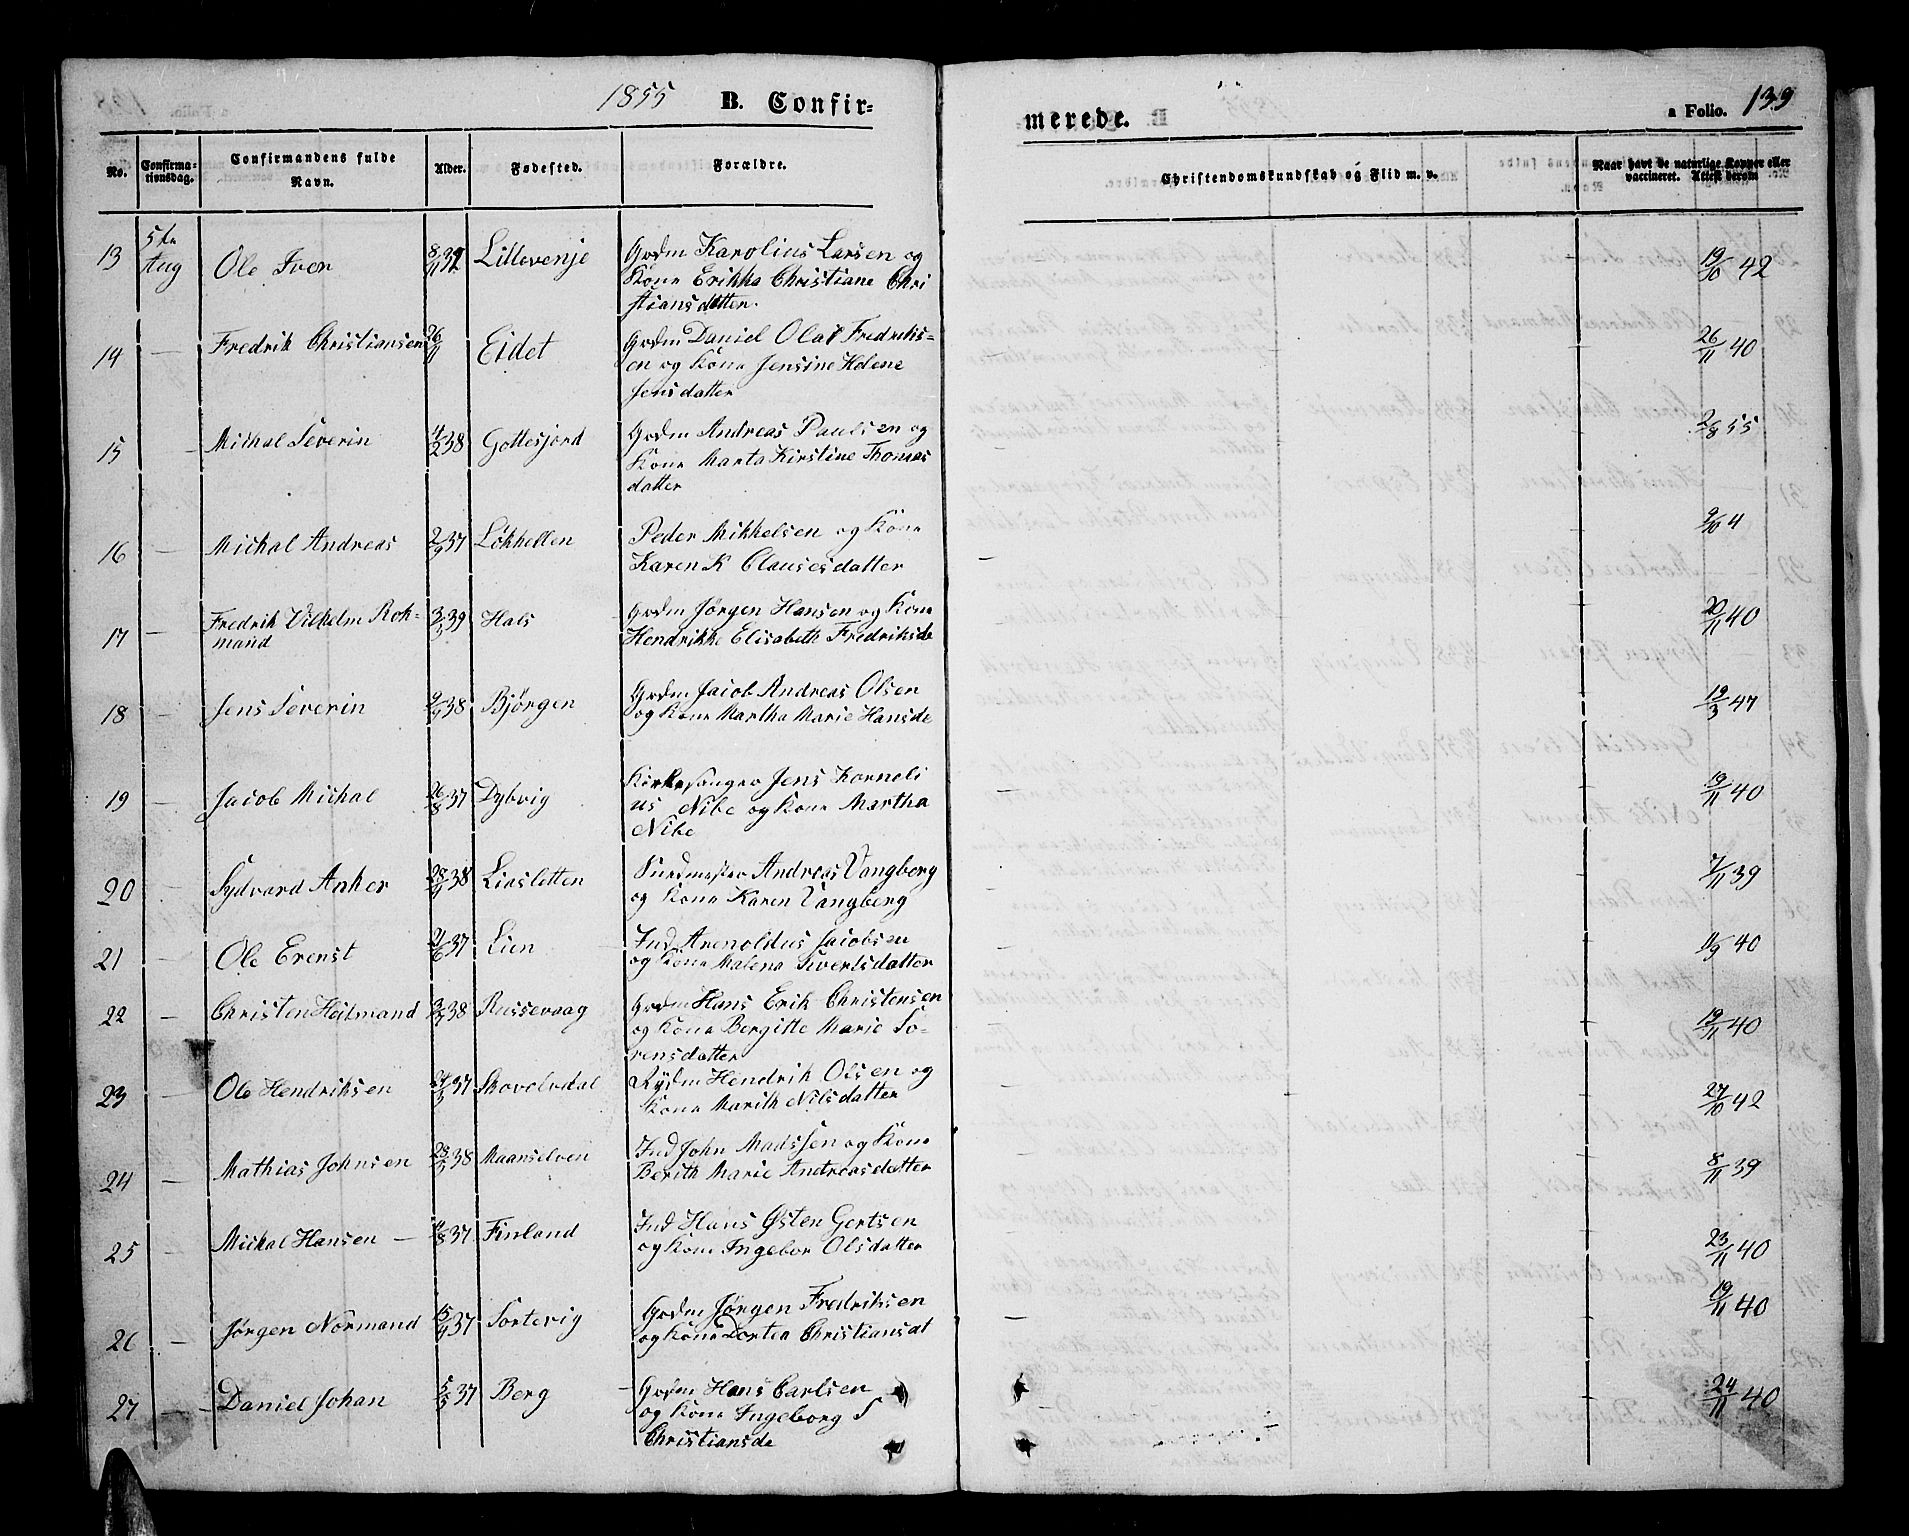 1855 B. Confir=
merede. a Folio. 139
No. Confirma-tionsdag. Confirmandens fulde Navn. Alder. Fødested. Forældre. Christendomskundskab og Flid m. v. Naar havt de naturlige Kopper eller vaccineret. Attest derom
13 5te Aug Ole Iver 8/11 32 Lillevenje Grdm Karolius Larsen og
Kona Erikka Christiane Chri
stiansdatter. 19/10 42
14 — Fredrik Christiansen 26/9 Eidet Grdm Daniel Olai Fredriks=
en og Kona Jensine Helene
Jensdatter 26/11 40
15 — Michal Severin 4/2 38 Gottesjord Grdm Andreas Paulsen og
Kona Marta Kirstine Thomas
datter 2/8 55
16 — Michal Andreas 2/9 37 Løkhellen Peder Mikkelsen og Kona
Karen K Clausesdatter — 9/10 4
17 — Fredrik Vilhelm Rok=
mand 3/3 39 Hals Grdm Jørgen Hansen og Kona
Hendrikke Elisabeth Fredriksde 20/11 40
18 — Jens Severin 9/9 38 Bjørgen Grdm Jacob Andreas Olsen
og Kona Martha Marie Hansde 19/3 47
19 — Jacob Michal 26/8 37 Dybvig Kirkesanger Jens Korneli
us Nibe og Kona Martha
Nibe — 19/11 40
20 Sydvard Anker 28/9 38 Liasletten Andreas Vangberg
og Kona Karen Vangberg 7/11 39
21 — Ole Erenst 21/6 37 Lien Ind Arenoldus Jacobsen
og Kona Malena Sivertsdatter 11/9 40
22 — Christen Heitmand 3/7 38 Russevaag Grdm Hans Erik Christensen
og Kona Bergitte Marie So-
rensdatter 19/11 40
23 — Ole Hendriksen 24/3 37 Skovelvdal Rydm Hendrik Olsen og
Kona Marith Nilsdatter 27/10 42
24 — Mathias Johnsen 28/3 38 Maanselven Ind John Madssen og Kona
Berith Marie Andreasdatter 8/11 39
25 — Mickal Hansen — 11/8 37 Finland Ind Hans Østen Gertsen
og Kona Ingebor Olsdatter 23/11 40
26 — Jørgen Normand 15/9 37 Sortevig Grdm Jørgen Fredriksen
og Kona Dortea Christiansdt 19/11 40
27 — Daniel Johan 5/3 37 Berg Grdm Hans Carlsen
og Kona Ingeborg S
Christiansde 24/11 40